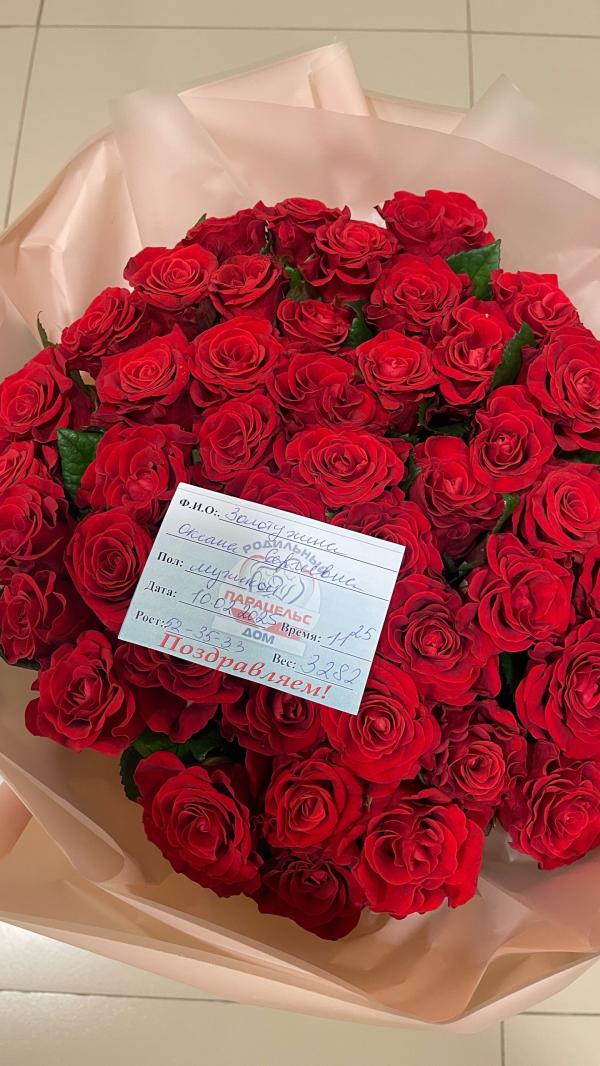 Ф.И.О: Золотухина
Оксана Сергеевна
РОДИЛЬНЫЙ
Пол: мужской
ПАРАЦЕЛЬС
Дата: 10.02.2025 Время: 11 25
ДОМ
Рост: 52-35-33 Вес: 3282
Поздравляем!